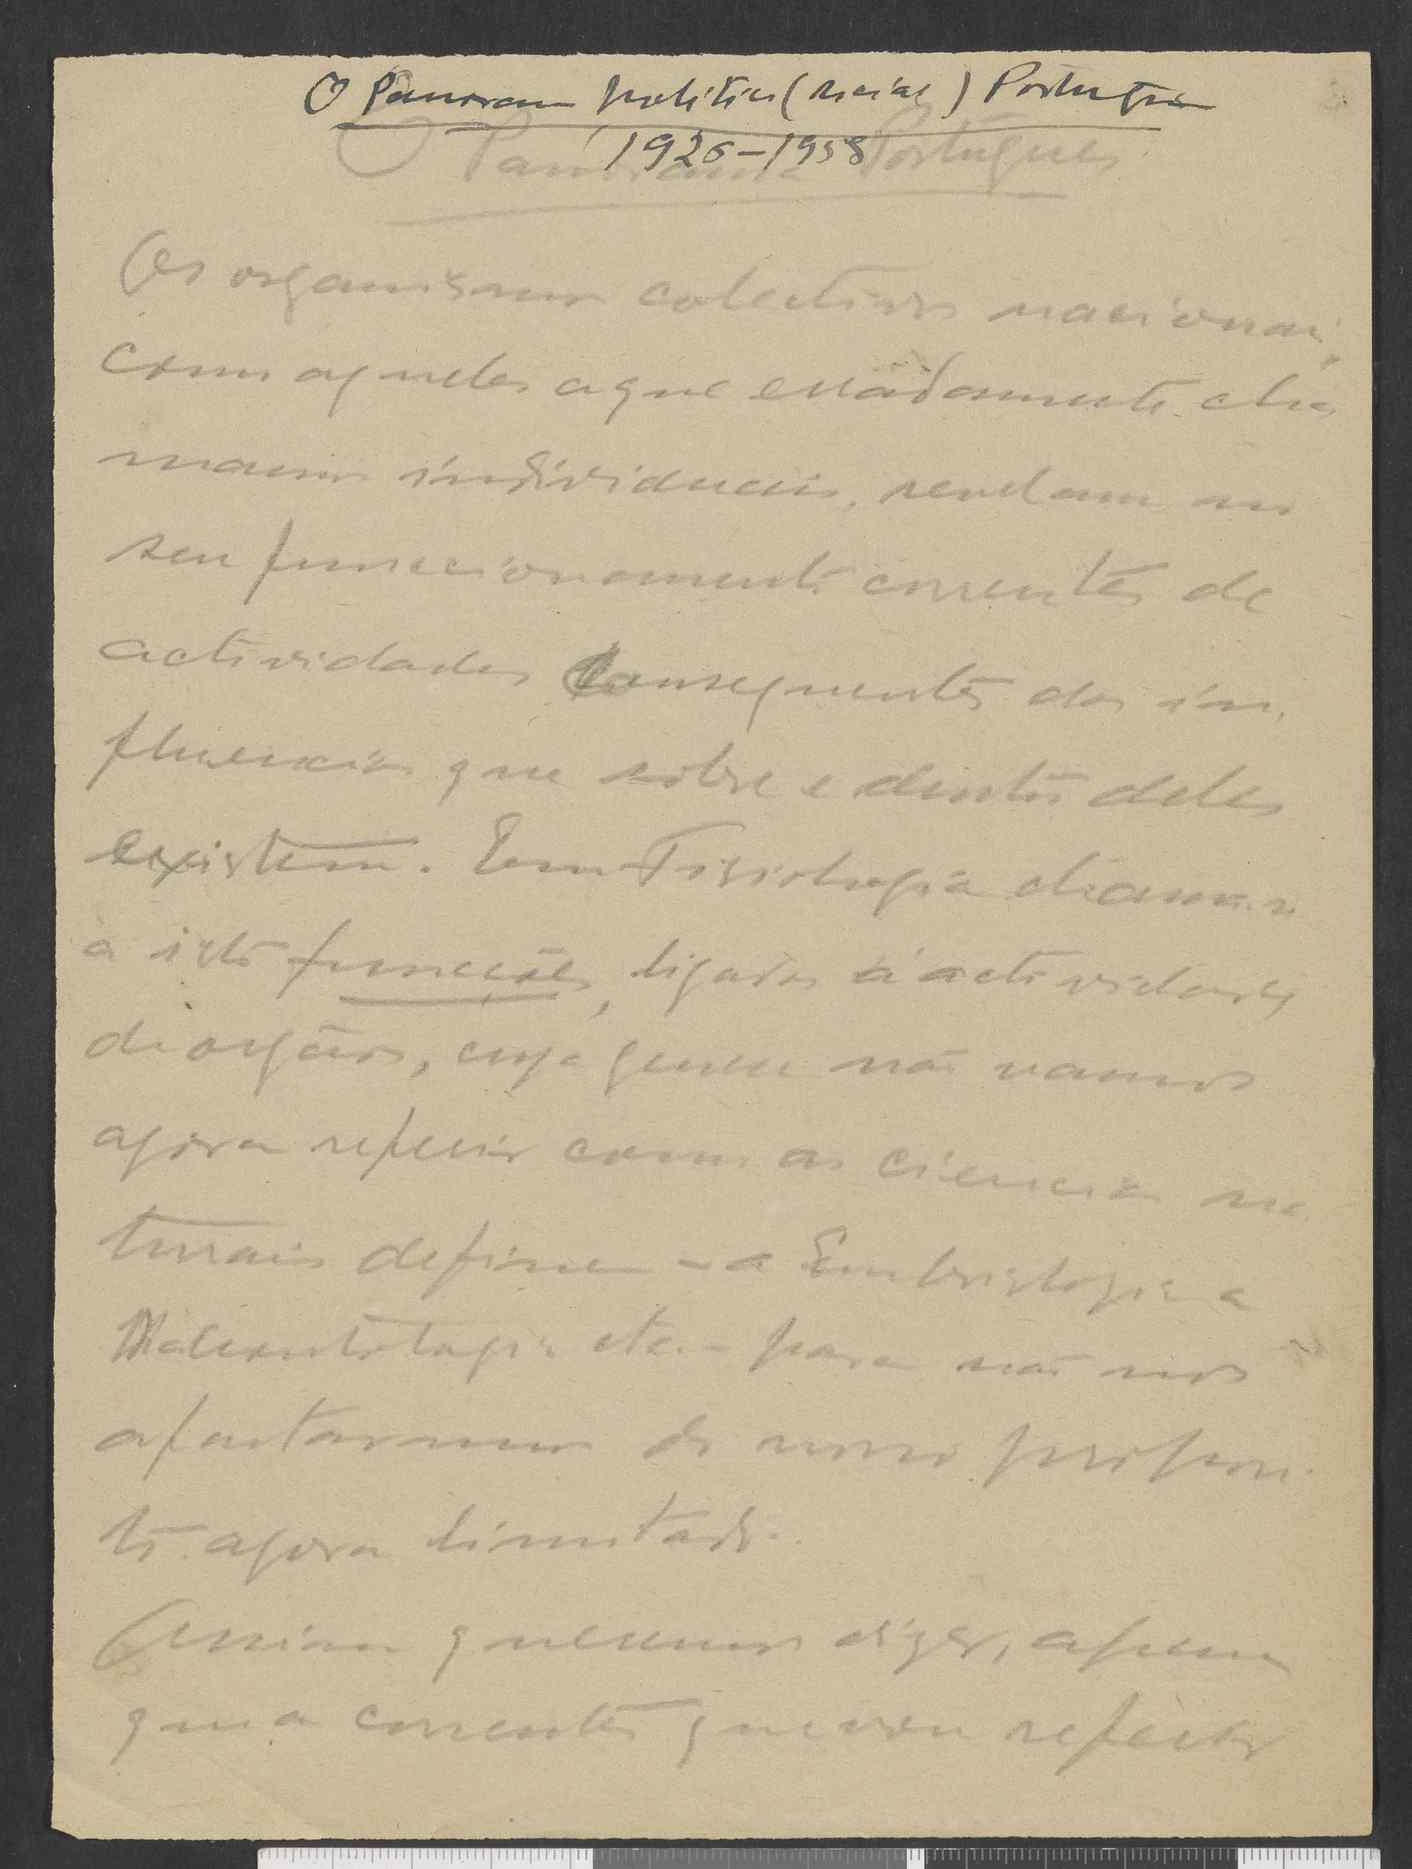 O Panorama politico (social) Português
1926-1958
O Panorama Português
Os organismos colectivos nacionais,
como aqueles a que erradamente cha
mamos individuais, revelam no
seu funccionamento correntes de
actividades consequentes das in-
fluencias que sobre e dentro deles
existem. Em Fisiologia chama-se
a isto funcções, ligadas á actividade
de orgãos, cuja genese não vamos
agora referir como as ciencias na
turais definem - a Embriologia a
Paleontologia etc. - para não nos
afastarmos do nosso proposi-
to agora limitado.
Assim queremos dizer, apenas
que a correntes que vou referir